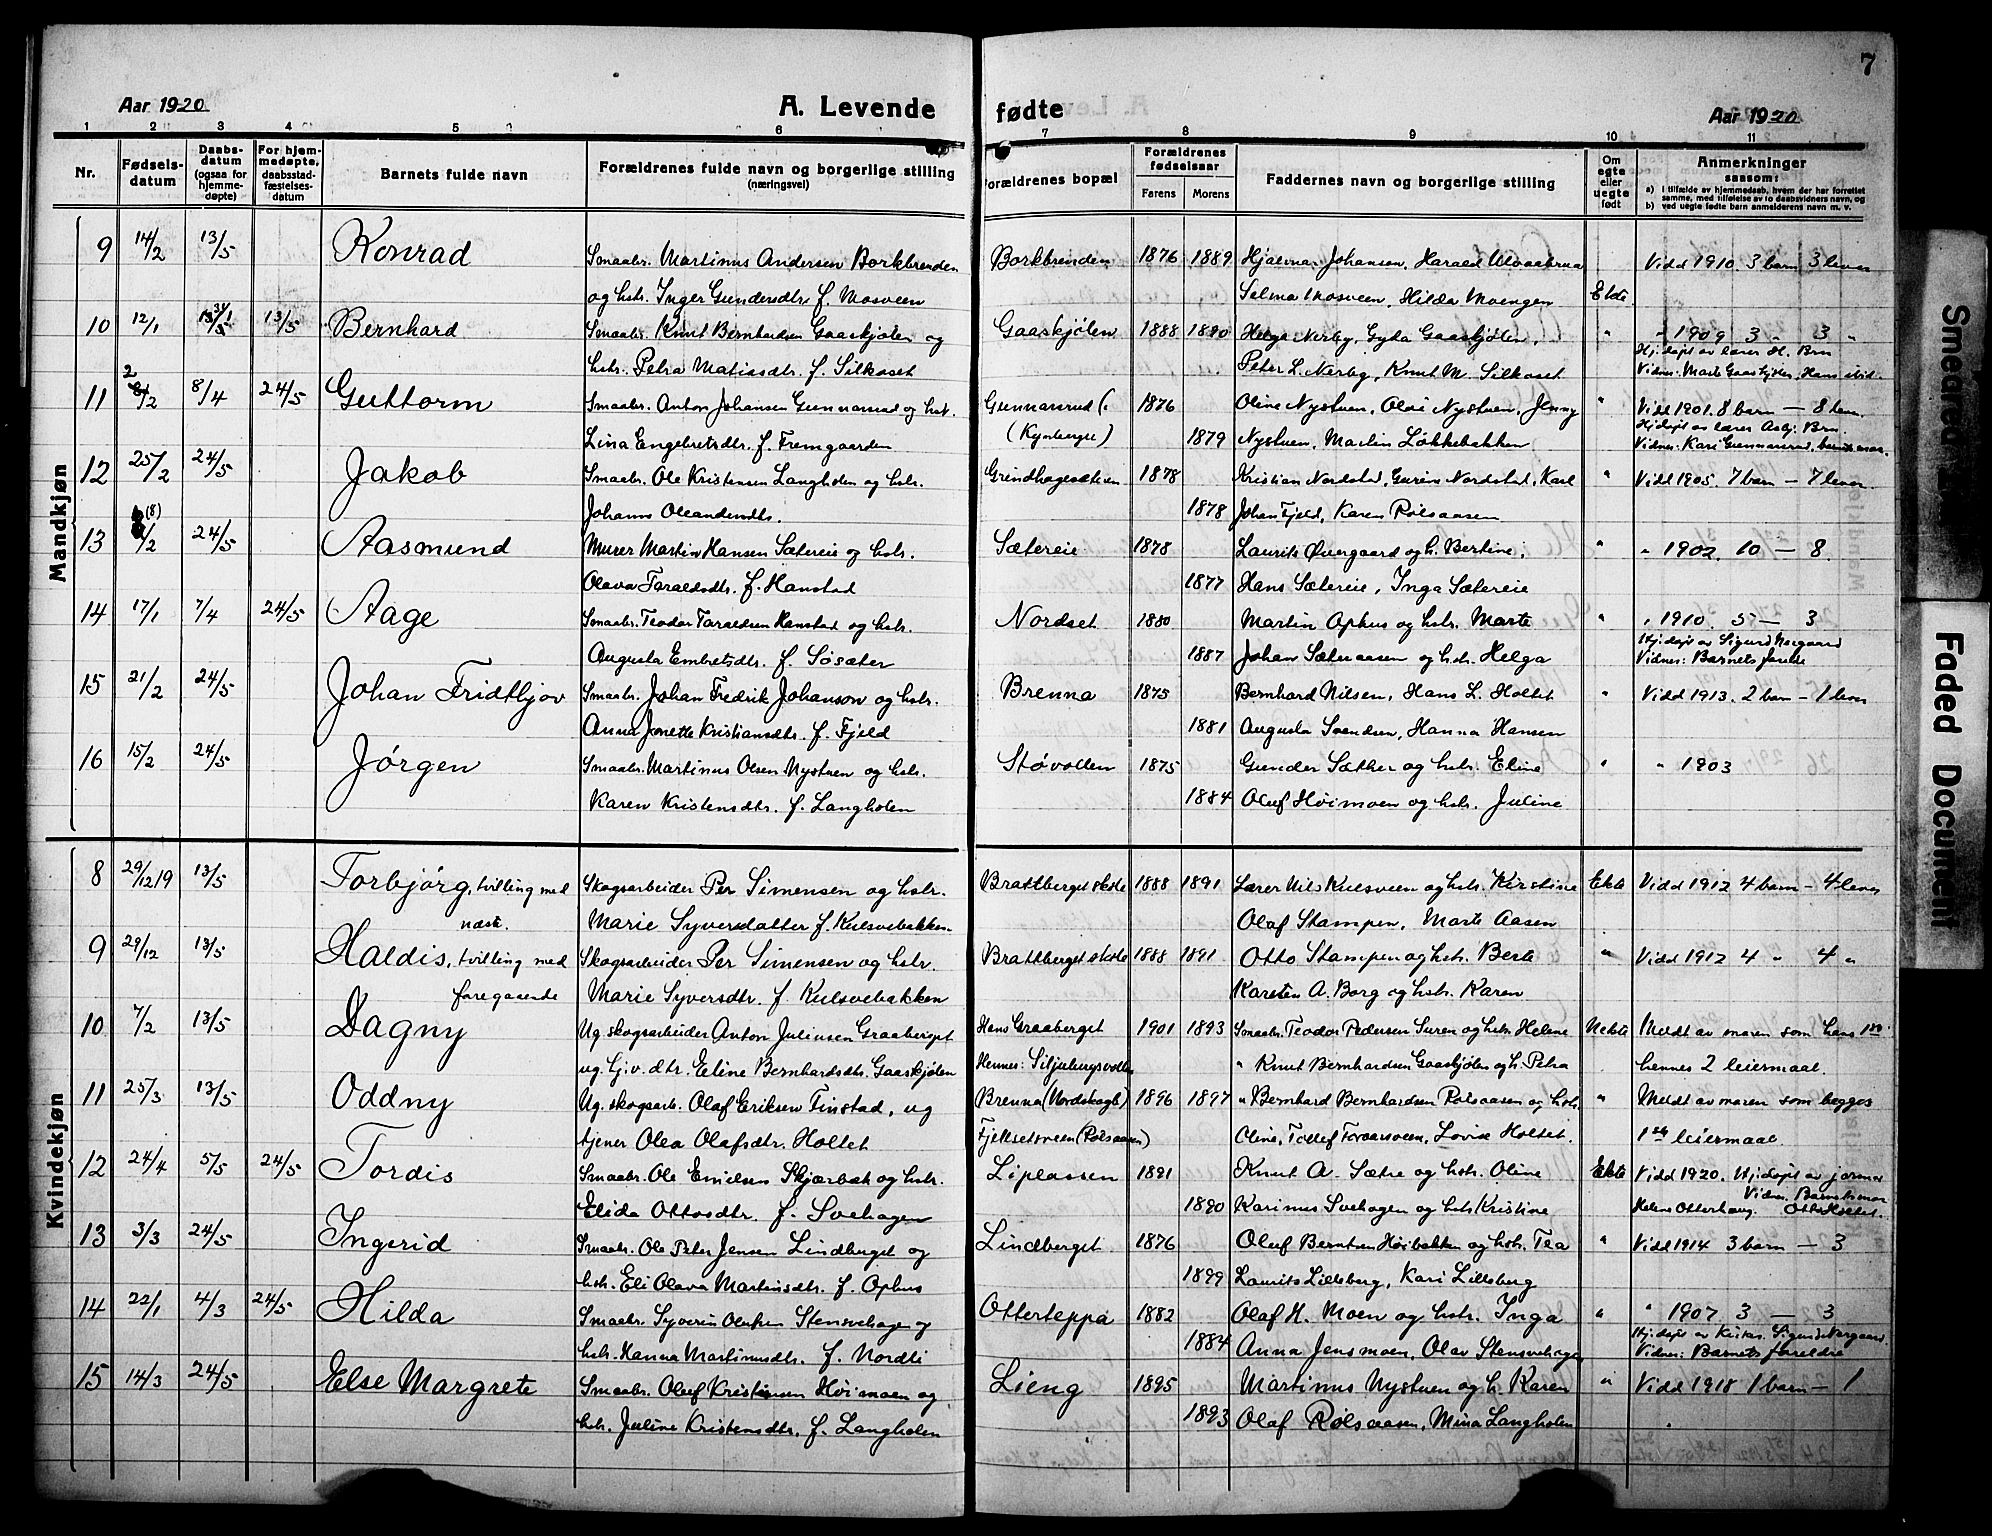 7
Aar 1920 A. Levende fødte Aar 1920
1 2 3 4 5 6 7 8 9 10 11
Nr. Fødselsdatum Daabsdatum (ogsaa for hjemmedøpte) For hjemmedøpte, daabsstadfæstelsesdatum Barnets fulde navn Forældrenes fulde navn og borgerlige stilling (næringsvei) Forældrenes bopæl Forældrenes fødselsaar Farens Morens Faddernes navn og borgerlige stilling Om egte eller uegte født Anmerkninger saasom:
a) i tilfælde av hjemmedaab, hvem der har forrettet samme, med tilføielse av to daabsvidners navn, og
b) ved uegte fødte barn anmelderens navn m. v.
Mandkjøn
9 14/2 13/5 Konrad Smaabr. Martinus Andersen Borkbrenden Borkbrenden 1876 1889 Hjalmar Johansen, Harald Ulvaabrua Vidd 1910. 3 barn 3 lever
og hstr. Inger Gundersdtr. f. Mosveen Selma Mosveen, Hilda Moengen Ekte
10 12/1 13/5 Bernhard Smaabr. Knut Bernhardsen Gaaskjølen og Gaaskjølen 1888 1890 Helga Nerby, Gyda Gaaskjølen, " " 1909 3 " 3 "
hstr. Petra Matiasdtr. f. Silkoset Peter L. Nerby, Knut M. Silkoset Hj.døpt av lærer H. Brn
Vidner: Marte Gaaskjølen, Hans
11 2/2 8/4 24/5 Guttorm Smaabr. Anton Johansen Gunnarsrud og hstr. Gunnarsrud 1876 Oline Nystuen, Olav Nystuen, Jenny " Vidd 1901. 8 barn — 8 lever
Lina Engebretsdtr. f. Fremgaarden (Kynberget) 1879 Nystuen, Martin Løkkebakken Hj.døpt av lærer Asbj. Brn.
Vidner: Kari Gunnarsrud, barnets mor.
12 25/2 24/5 Jakob Smaabr. Ole Kristensen Langholen og hstr. Grindhagesæteren 1878 Kristian Nordstad, Gurine Nordstad, Karl " Vidd 1905. 7 barn — 7 lever
Johanne Oleandersdtr. 1878 Johan Fjeld, Karen Rølsaasen
13 (8)/2 24/5 Aasmund Murer Martin Hansen Sætereie og hstr. Sætereie 1878 Laurits Øvergaard og h. Bertine, " " 1902. 10 — 8.
Olava Taraldsdtr. f. Hanstad 1877 Hans Sætereie, Inga Sætereie
14 17/1 7/4 24/5 Aage Smaabr. Teodor Taraldsen Hanstad og hstr. Nordset 1880 Martin Ophus og hstr. Marte " " 1910. 5 — 3
Augusta Embretsdtr. f. Søsæter 1887 Johan Sæteraasen og hstr. Helga Hj.døpt av Sigurd Nergaard
Vidner: Barnets forældre
15 21/2 24/5 Johan Fridthjov Smaabr. Johan Fredrik Johanson og hstr. Brenna 1875 Bernhard Nilsen, Hans L. Holtet " Vidd 1913. 2 barn — 1 lever
Anna Jonette Kristiansdtr. f. Fjeld 1881 Augusta Svendsen, Hanna Hansen
16 15/2 24/5 Jørgen Smaabr. Martinus Olsen Nystuen og hstr. Støvollen 1875 Gunder Sæther og hstr. Eline " " 1903
Karen Kristensdtr. f. Langholen 1884 Oluf Høimoen og hstr. Juline
Kvindekjøn
8 29/12 19 13/5 Torbjørg, tvilling med næste. Skogsarbeider Per Simensen og hstr. Brattberget skole 1888 1891 Lærer Nils Kulsveen og hstr. Kirstine Ekte Vidd 1912 4 barn — 4 lever
Marie Syversdatter f. Kulsvebakken Olaf Stampen, Marte Aasen
9 29/12 13/5 Haldis, tvilling med foregaaende Skogsarbeider Per Simensen og hstr. Brattberget skole 1888 1891 Otto Stampen og hstr. Berte " Vidd 1912 4 " 4 "
Marie Syversdtr. f. Kulsvebakken Karsten A. Borg og hstr. Karen
10 7/2 13/5 Dagny Ug. skogsarbeider Anton Juliusen Graaberget Hans Graaberget 1901 1893 Smaabr. Teodor Pedersen Suren og hstr. Helene Uekte Meldt av moren som hans 1ste
ug. Gj.v. dtr. Eline Bernhardsdtr. Gaaskjølen Hennes: Siljubergsvollen " Knut Bernhardsen Gaaskjølen og h. Petra hennes 2 leiermaal.
11 25/3 13/5 Oddny Ug. skogsarb. Olaf Eriksen Finstad, ug Brenna (Nordskogb) 1896 1897 " Bernhard Bernhardsen Rølsaasen og hstr. " Meldt av moren som begges
tjener Olea Olafsdtr. Holtet Fjellsetsveen (Rølsaasen) Oline, Tollef Toraasveen, Lovise Holtet. 1ste leiermaal
12 24/4 5/5 24/5 Tordis Smaabr. Ole Emielsen Skjærbak og hstr. Liplassen 1891 Knut A. Sætre og hstr. Oline Ekte Vidd 1920. Hj.døpt av jormor
Elida Ottosdtr. f. Svehagen 1890 Karinus Svehagen og hstr. Kristine Helene Otterhaug. Vidner. Barnets mor Otto Holtet.
13 3/3 24/5 Ingerid Smaabr. Ole Peter Jensen Lindberget og Lindberget 1876 Oluf Berntsen Høibakken og hstr. Tea " Vidd 1914 3 barn — 3
hstr. Eli Olava Martinsdtr. f. Ophus 1899 Laurits Lilleberg, Kari Lilleberg
14 22/1 4/3 24/5 Hilda Smaabr. Syverin Olufsen Stensvehagen og Otterteppa 1882 Olaf H. Moen og hstr. Inga " " 1907 3 — 3
hstr. Hanna Martinusdtr. f. Nordli 1884 Anna Jensmoen, Olav Stensvehagen Hj.døpt av Kirkes. Sigurd Nergaard.
Vidner: Barnets forældre
15 14/3 24/5 Else Margrete Smaabr. Oluf Kristiansen Høimoen og Lieng 1895 Martinus Nystuen og h. Karen " Vidd 1918 1 barn — 1
hstr. Juline Kristensdtr. f. Langholen 1893 Olaf Rølsaasen, Mina Langholen
Smeared
Faded Document